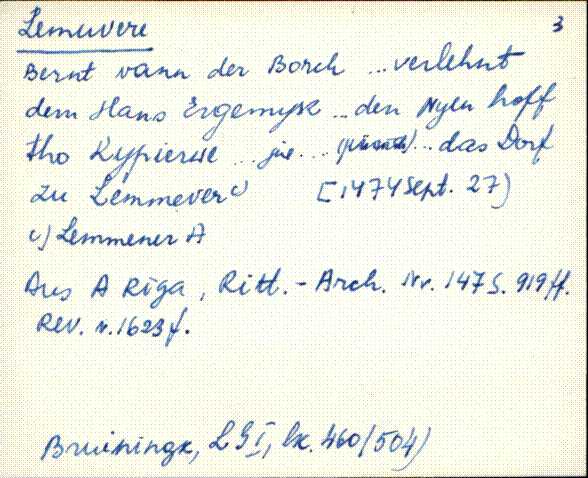 Lemuvere 3
Bernt vann der Borch ... verlehnt
dem Hans Ergemysk ... den Nyen hoff
tho Kypierwe ... ... ... das Dorf
zu Lemmever c) [1474 Sept. 27)
c) Lemmener A
Aus A Riga, Ritt.-Arch. Nr. 147 S. 919 ff.
Rev. v. 1623 f.
Bruiningk, LGI, lk. 460 (504)